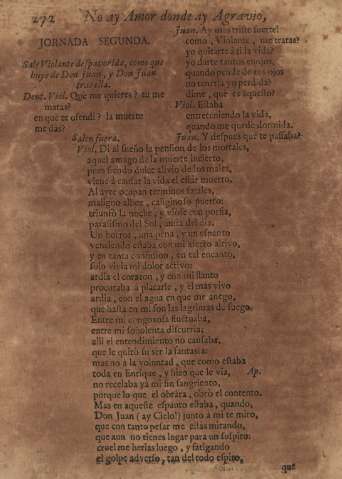 272 No ay Amor donde ay Agravio,
JORNADA SEGUNDA.
Sale Violante despavorida, como que
huye de Don Juan, y Don Juan
tras ella.
Dent. Viol. Que me quieres? tu me
matas?
en què te ofendi? la muerte
me das?
Salen fuera.
Juan. Ay mas triste suerte!
como, Violante, me tratas?
yo quitarte à ti la vida?
yo darte tantos enojos,
quando pende de tus ojos
no tenerla yo perdida?
dime, què es aquesto?
Viol. Estaba
entreteniendo la vida,
quando me quedè dormida.
Juan. Y despues què te passaba?
Viol. Di al sueño la pension de los mortales,
aquel amago de la muerte incierto,
pues siendo dulce alivio de los males,
viene à causar la vida el estàr muerto.
Al ayre ocupan terminos fatales,
maligno albor, caliginoso puerto:
triunfò la noche, y viòse con porfia,
parasismo del Sol, ansia del dia.
Un horror, una pena, y un
vencido estaba con mi aliento altivo,
y en tanta confusion, en tal encanto,
solo vivia mi dolor activo:
ardia el corazon, y con mi llanto
procuraba à placarle, y èl mas vivo
ardia, con el agua en que me anego,
que hasta en mì son las lagrimas de fuego.
Entre mi congoxosa fluctuaba,
entre mi soñolenta discurria;
allì el entendimiento no causaba,
que le quitò su ser la fantasia:
mas no à la voluntad, que como estaba
toda en Enrique, y hizo que le via, Ap.
no recelaba yà mi fin sangriento,
porque lo que el obràra, obrò el contento.
Mas en aqueste espanto estaba, quando,
Don Juan (ay Cielo!) junto à mì te miro,
que con tanto pesar me estàs mirando,
que aun no tienes lugar para un suspiro:
cruel me hieras luego, y fatigando
el golpe adverso, tan del todo espiro,
que